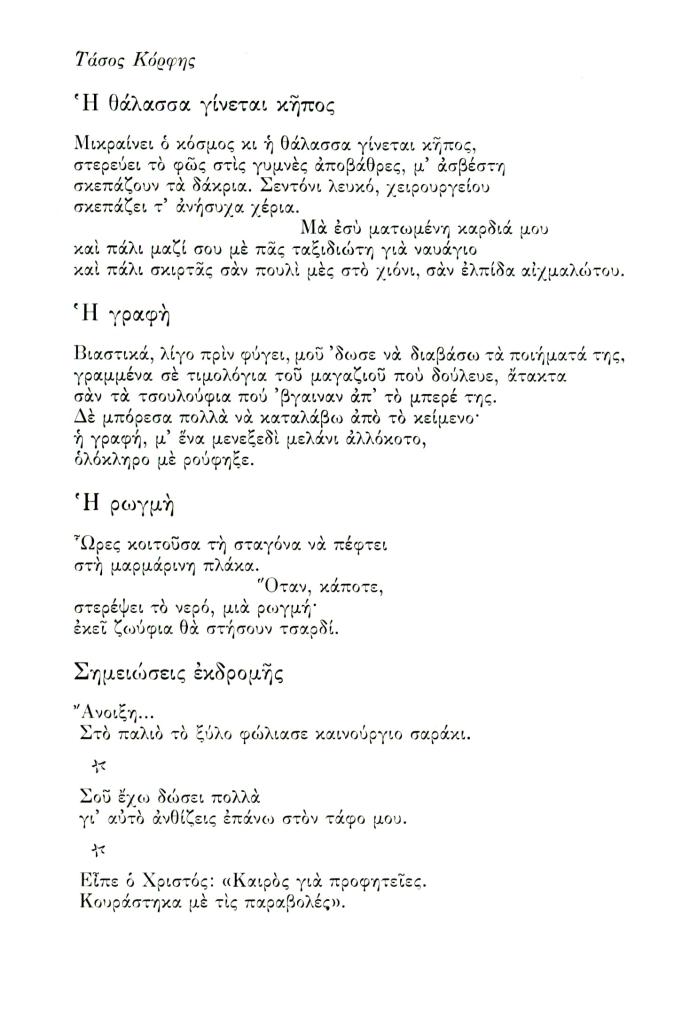 Τάσος Κόρφης
Ἡ θάλασσα γίνεται κῆπος
Μικραίνει ὁ κόσμος κι ἡ θάλασσα γίνεται κῆπος,
στερεύει τὸ φῶς στὶς γυμνὲς ἀποβάθρες, μ' ἀσβέστη
σκεπάζουν τὰ δάκρια. Σεντόνι λευκό, χειρουργείου
σκεπάζει τ' ἀνήσυχα χέρια.
Μὰ ἐσὺ ματωμένη καρδιά μου
καὶ πάλι μαζί σου μὲ πᾶς ταξιδιώτη γιὰ ναυάγιο
καὶ πάλι σκιρτᾶς σὰν πουλὶ μὲς στὸ χιόνι, σὰν ἐλπίδα αἰχμαλώτου.
Ἡ γραφὴ
Βιαστικά, λίγο πρὶν φύγει, μοῦ 'δωσε νὰ διαβάσω τὰ ποιήματά της,
γραμμένα σὲ τιμολόγια τοῦ μαγαζιοῦ ποὺ δούλευε, ἄτακτα
σὰν τὰ τσουλούφια πού 'βγαιναν ἀπ' τὸ μπερέ της.
Δὲ μπόρεσα πολλὰ νὰ καταλάβω ἀπὸ τὸ κείμενο·
ἡ γραφή, μ' ἕνα μενεξεδὶ μελάνι ἀλλόκοτο,
ὁλόκληρο μὲ ρούφηξε.
Ἡ ρωγμὴ
Ὧρες κοιτοῦσα τὴ σταγόνα νὰ πέφτει
στὴ μαρμάρινη πλάκα.
Ὅταν, κάποτε,
στερέψει τὸ νερό, μιὰ ρωγμή·
ἐκεῖ ζωύφια θὰ στήσουν τσαρδί.
Σημειώσεις ἐκδρομῆς
Ἄνοιξη...
Στὸ παλιὸ τὸ ξύλο φώλιασε καινούργιο σαράκι.
Σοῦ ἔχω δώσει πολλὰ
γι' αὐτὸ ἀνθίζεις ἐπάνω στὸν τάφο μου.
Εἶπε ὁ Χριστός: «Καιρὸς γιὰ προφητεῖες.
Κουράστηκα μὲ τὶς παραβολές».